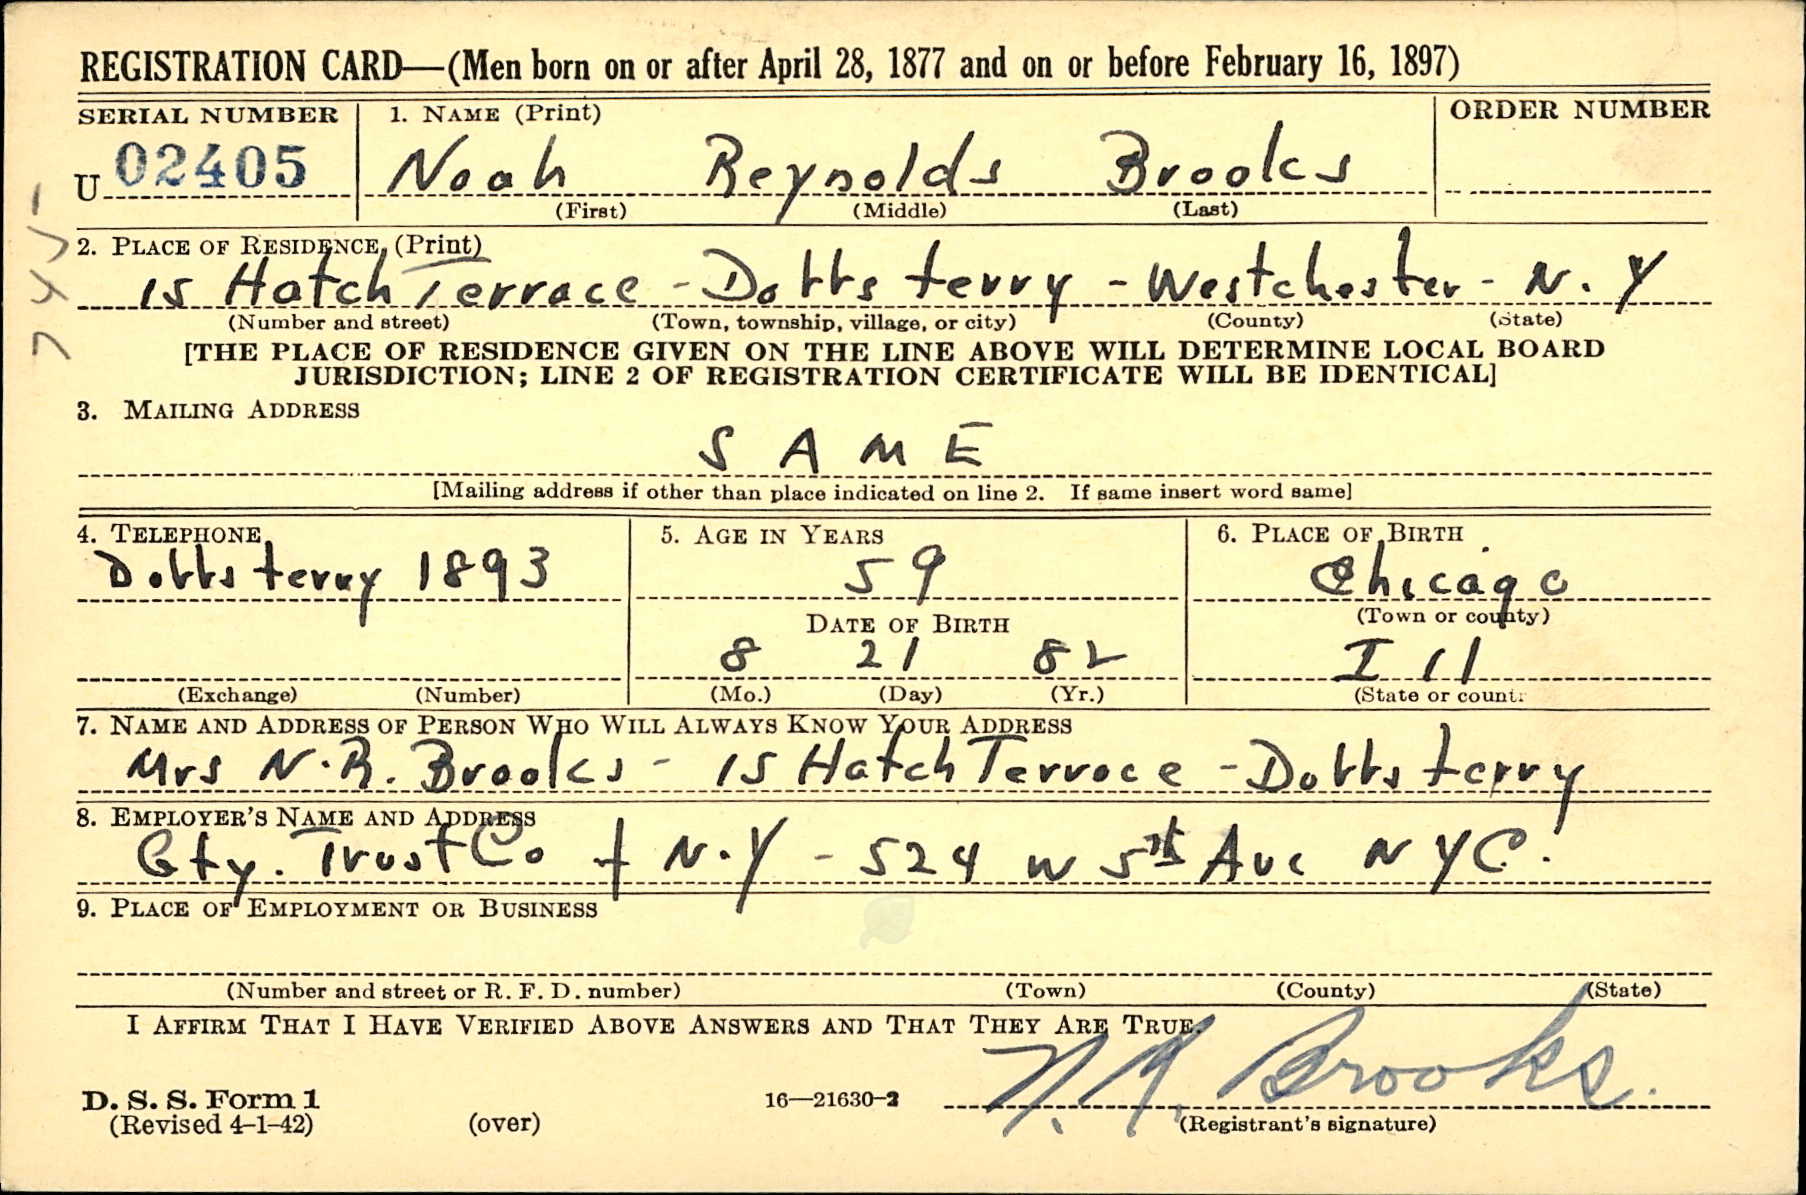 REGISTRATION CARD—(Men born on or after April 28, 1877 and on or before February 16, 1897)
SERIAL NUMBER 1. NAME (Print) ORDER NUMBER
U 02405 Noah Reynolds Brooks
(First) (Middle) (Last)
2. PLACE OF RESIDENCE (Print)
15 Hatch Terrace - Dobbs ferry - Westchester - N. Y
(Number and street) (Town, township, village, or city) (County) (State)
[THE PLACE OF RESIDENCE GIVEN ON THE LINE ABOVE WILL DETERMINE LOCAL BOARD
JURISDICTION; LINE 2 OF REGISTRATION CERTIFICATE WILL BE IDENTICAL]
3. MAILING ADDRESS
SAME
[Mailing address if other than place indicated on line 2. If same insert word same]
4. TELEPHONE 5. AGE IN YEARS 6. PLACE OF BIRTH
Dobbs ferry 1893 59 Chicago
(Town or county)
DATE OF BIRTH
8 21 82 Ill
(Exchange) (Number) (Mo.) (Day) (Yr.) (State or countr
7. NAME AND ADDRESS OF PERSON WHO WILL ALWAYS KNOW YOUR ADDRESS
Mrs N.R. Brooks - 15 Hatch Terrace - Dobbs ferry
8. EMPLOYER'S NAME AND ADDRESS
Gty. Trust Co of N.Y - 524 W 5th Ave NYC.
9. PLACE OF EMPLOYMENT OR BUSINESS
(Number and street or R. F. D. number) (Town) (County) (State)
I AFFIRM THAT I HAVE VERIFIED ABOVE ANSWERS AND THAT THEY ARE TRUE.
N. R. Brooks.
D. S. S. Form 1 16—21630-2
(Revised 4-1-42) (over) (Registrant's signature)